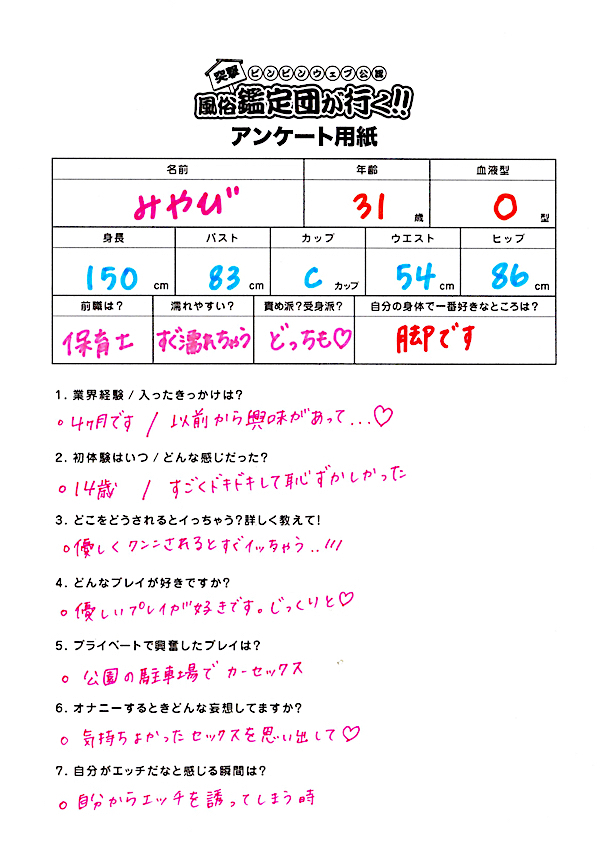 突撃 ピンピンウェブ公認
風俗鑑定団が行く!!
アンケート用紙
名前 年齢 血液型
みやび 31 歳 O 型
身長 バスト カップ ウエスト ヒップ
150 cm 83 cm C カップ 54 cm 86 cm
前職は? 濡れやすい? 責め派?受身派? 自分の身体で一番好きなところは?
保育士 すぐ濡れちゃう どっちも♡ 脚です
1. 業界経験 / 入ったきっかけは?
○4ヶ月です / 以前から興味があって...♡
3. どこをどうされるとイっちゃう?詳しく教えて!
○優しくクンニされるとすぐイッちゃう..!!!
4. どんなプレイが好きですか?
○優しいプレイが好きです。じっくりと♡
5. プライベートで興奮したプレイは?
○ 公園の駐車場でカーセックス
6. オナニーするときどんな妄想してますか?
○ 気持ちよかったセックスを思い出して♡
7. 自分がエッチだなと感じる瞬間は?
○自分からエッチを誘ってしまう時